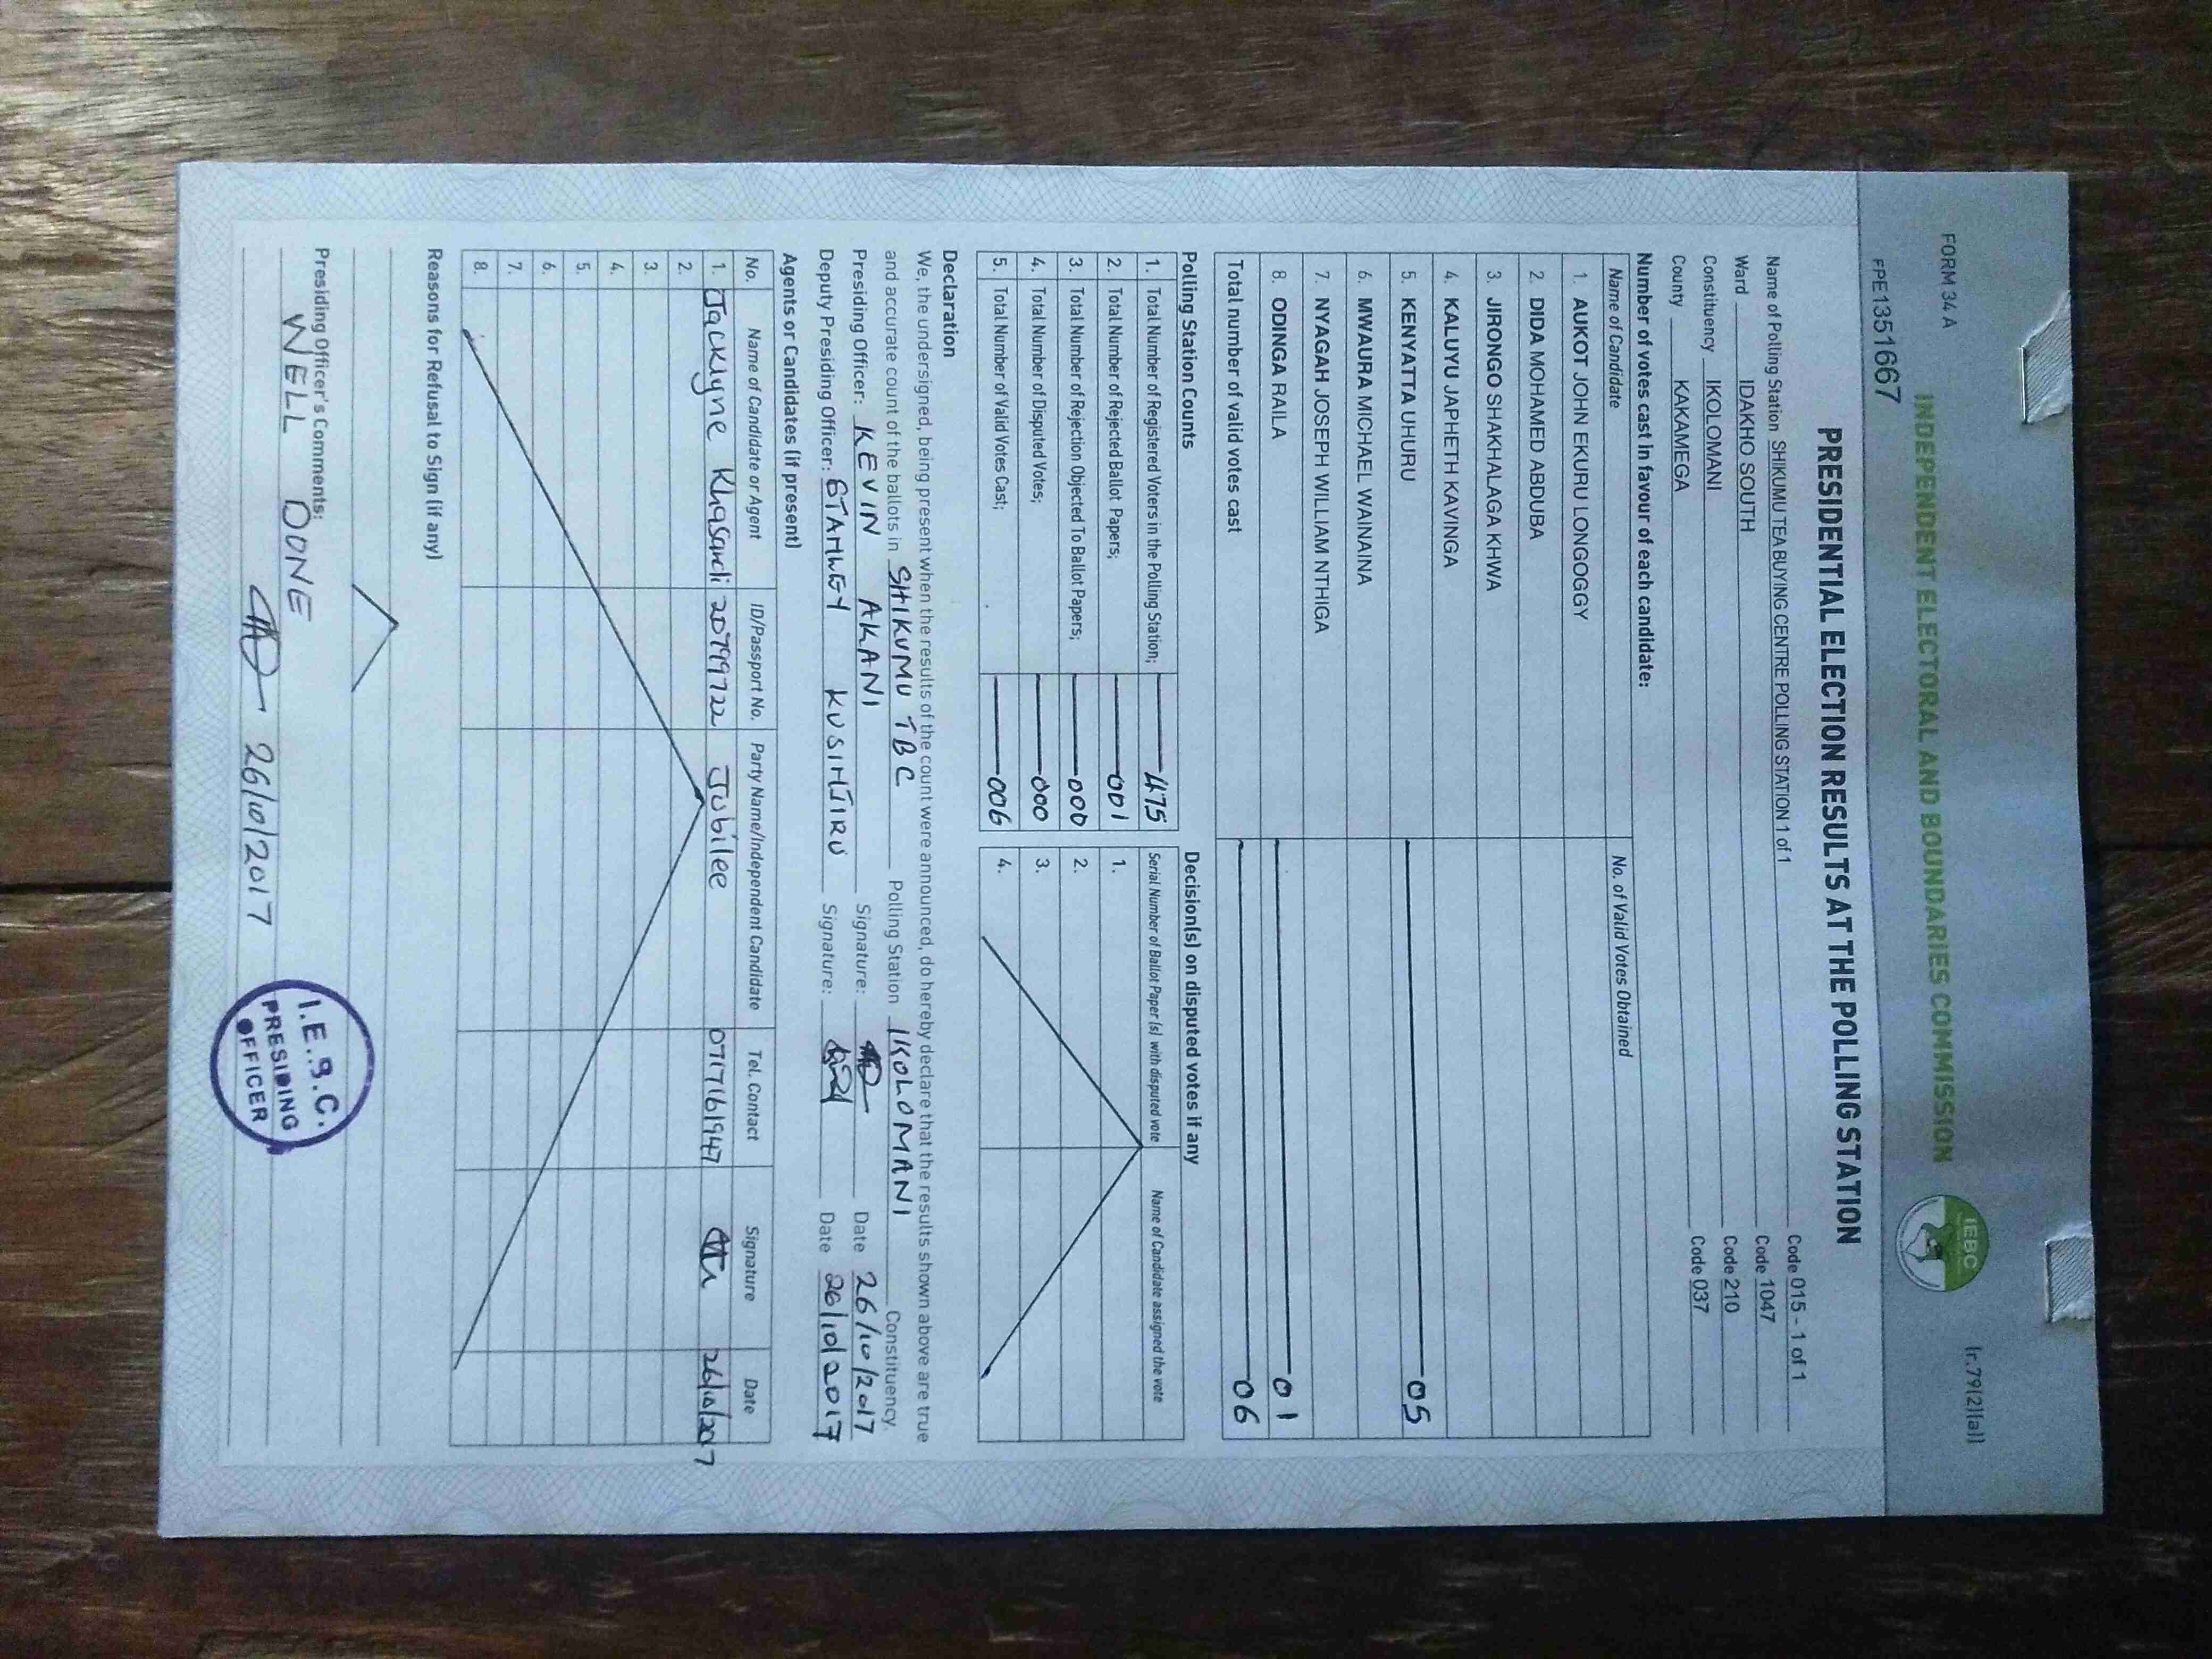 FORM 34 A
(r.79(2)(a))
INDEPENDENT ELECTORAL AND BOUNDARIES COMMISSION
IEBC
FPE1351667
PRESIDENTIAL ELECTION RESULTS AT THE POLLING STATION
Name of Polling Station SHIKUMU TEA BUYING CENTRE POLLING STATION 1 of 1 Code 015 - 1 of 1
Ward IDAKHO SOUTH Code 1047
Constituency IKOLOMANI Code 210
County KAKAMEGA Code 037
Number of votes cast in favour of each candidate:
Name of Candidate No. of Valid Votes Obtained
1. AUKOT JOHN EKURU LONGOGGY
2. DIDA MOHAMED ABDUBA
3. JIRONGO SHAKHALAGA KHWA
4. KALUYU JAPHETH KAVINGA
5. KENYATTA UHURU 05
6. MWAURA MICHAEL WAINAINA
7. NYAGAH JOSEPH WILLIAM NTHIGA
8. ODINGA RAILA 01
Total number of valid votes cast 06
Polling Station Counts
1. Total Number of Registered Voters in the Polling Station; 475
2. Total Number of Rejected Ballot Papers; 001
3. Total Number of Rejection Objected To Ballot Papers; 000
4. Total Number of Disputed Votes; 000
5. Total Number of Valid Votes Cast; 006
Decision(s) on disputed votes if any
Serial Number of Ballot Paper (s) with disputed vote Name of Candidate assigned the vote
1.
2.
3.
4.
Declaration
We, the undersigned, being present when the results of the count were announced, do hereby declare that the results shown above are true
and accurate count of the ballots in SHIKUMU TBC Polling Station IKOLOMANI Constituency.
Presiding Officer: KEVIN AKANI Signature: Date 26/10/2017
Deputy Presiding Officer: STANLEY Signature: Date 26/10/2017
Agents or Candidates (if present)
No. Name of Candidate or Agent ID/Passport No. Party Name/Independent Candidate Tel. Contact Signature Date
1. Jacklyne Khasandi 20799722 Jubilee 0717161947 26/10/2017
2.
3.
4.
5.
6.
7.
8.
Reasons for Refusal to Sign (if any)
Presiding Officer's Comments:
WELL DONE
26/10/2017
I.E.B.C.
PRESIDING
OFFICER